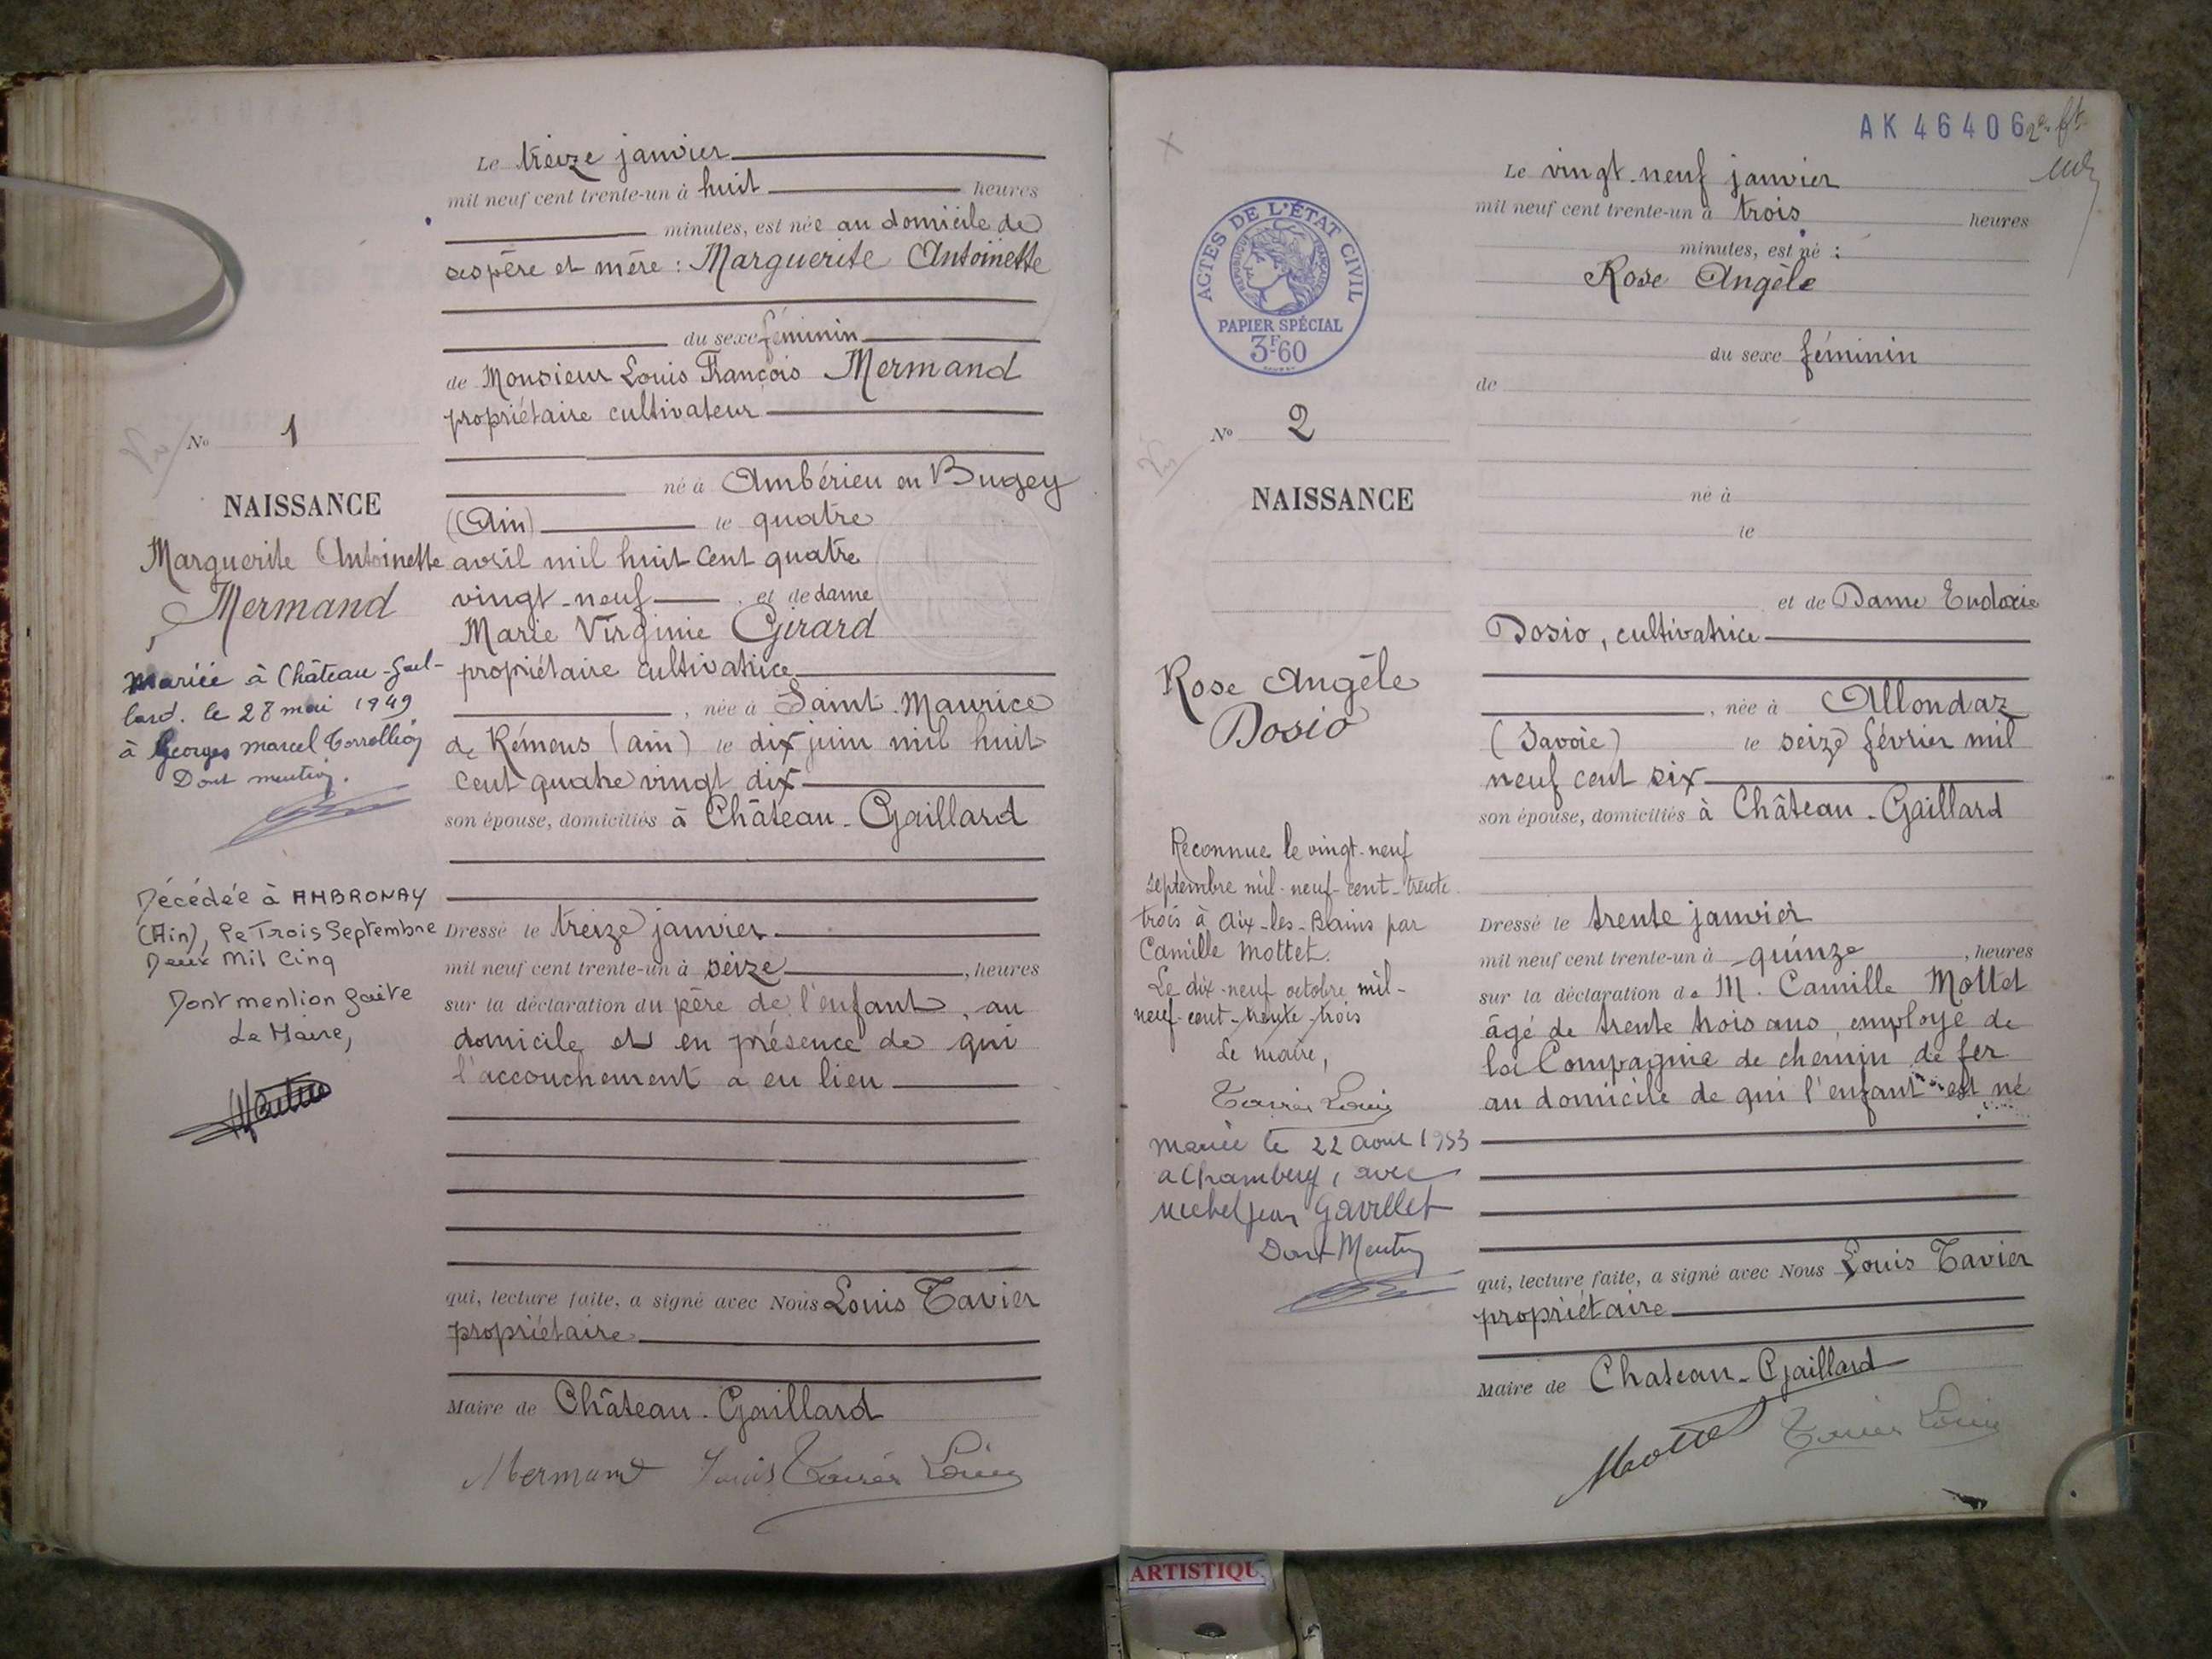 Le treize janvier
mil neuf cent trente-un à huit heures
minutes, est née au domicile de
ses père et mère : Marguerite Antoinette
du sexe féminin
de Monsieur Louis François Mermand
propriétaire cultivateur
né à Ambérieu en Bugey
(Ain) le quatre
avril mil huit cent quatre
vingt-neuf, et de dame
Marie Virginie Girard
propriétaire cultivatrice
, née à Saint-Maurice
de Rémens (Ain) le dix juin mil huit
cent quatre vingt dix
son épouse, domiciliés à Château-Gaillard
Dressé le treize janvier
mil neuf cent trente-un à seize, heures
sur la déclaration du père de l'enfant, au
domicile et en présence de qui
l'accouchement a eu lieu
qui, lecture faite, a signé avec Nous Louis Tavier
propriétaire
Maire de Château-Gaillard
Mermand Louis Tavier Louis
No 1
NAISSANCE
Marguerite Antoinette
Mermand
Mariée à Château-Gail-
lard. le 28 mai 1949
à Georges Marcel
Dont mention.
Décédée à AMBRONAY
(Ain), le Trois Septembre
Deux Mil Cinq
Dont mention faite
Le Maire,
AK 46406
Le vingt-neuf janvier
mil neuf cent trente-un à trois heures
minutes, est né :
Rose Angèle
du sexe féminin
de
né à
le
et de Dame Eudoxie
Dosio, cultivatrice
, née à Allondaz
(Savoie) le seize février mil
neuf cent six
son épouse, domiciliés à Château-Gaillard
Dressé le trente janvier
mil neuf cent trente-un à quinze, heures
sur la déclaration de M. Camille Mottet
âgé de trente trois ans, employé de
la Compagnie de chemin de fer
au domicile de qui l'enfant est né
qui, lecture faite, a signé avec Nous Louis Tavier
propriétaire
Maire de Chateau-Gaillard
Mottet Tavier Louis
ACTES DE L'ÉTAT CIVIL
RÉPUBLIQUE FRANÇAISE
PAPIER SPÉCIAL
3F60
No 2
NAISSANCE
Rose Angèle
Dosio
Reconnue le vingt-neuf
septembre mil-neuf-cent-trente
trois à Aix-les-Bains par
Camille Mottet.
Le dix-neuf octobre mil-
neuf-cent-trente-trois
Le maire,
Tavier Louis
Mariée le 22 Aout 1953
a Chambery, avec
Michel Jean Gavillet
Dont Mention
ARTISTIQU